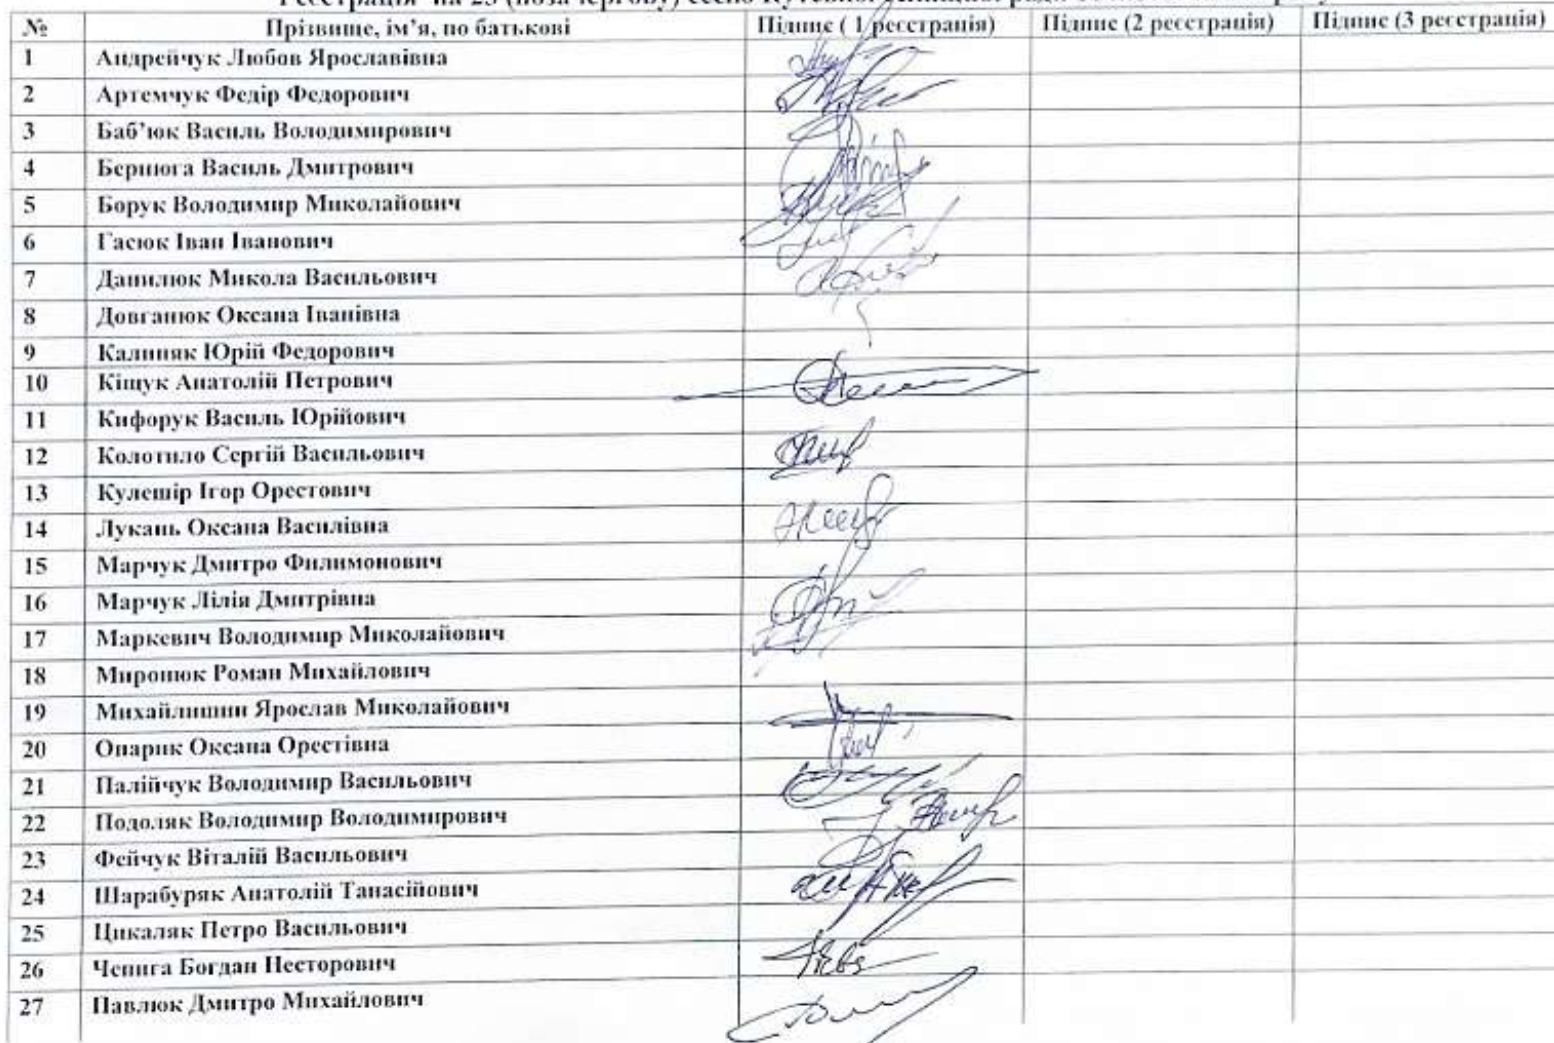 Реєстрація на 23 (позачергову) сесію Кутської селищної ради
№ Прізвище, ім’я, по батькові Підпис ( 1 реєстрація) Підпис (2 реєстрація) Підпис (3 реєстрація)
1 Андрейчук Любов Ярославівна
2 Артемчук Федір Федорович
3 Баб’юк Василь Володимирович
4 Бернюга Василь Дмитрович
5 Борук Володимир Миколайович
6 Гасюк Іван Іванович
7 Данилюк Микола Васильович
8 Довганюк Оксана Іванівна
9 Калиняк Юрій Федорович
10 Кіщук Анатолій Петрович
11 Кифорук Василь Юрійович
12 Колотило Сергій Васильович
13 Кулешір Ігор Орестович
14 Лукань Оксана Василівна
15 Марчук Дмитро Филимонович
16 Марчук Лілія Дмитрівна
17 Маркевич Володимир Миколайович
18 Миронюк Роман Михайлович
19 Михайлишин Ярослав Миколайович
20 Опарик Оксана Орестівна
21 Палійчук Володимир Васильович
22 Подоляк Володимир Володимирович
23 Фейчук Віталій Васильович
24 Шарабуряк Анатолій Танасійович
25 Цикаляк Петро Васильович
26 Чепига Богдан Несторович
27 Павлюк Дмитро Михайлович